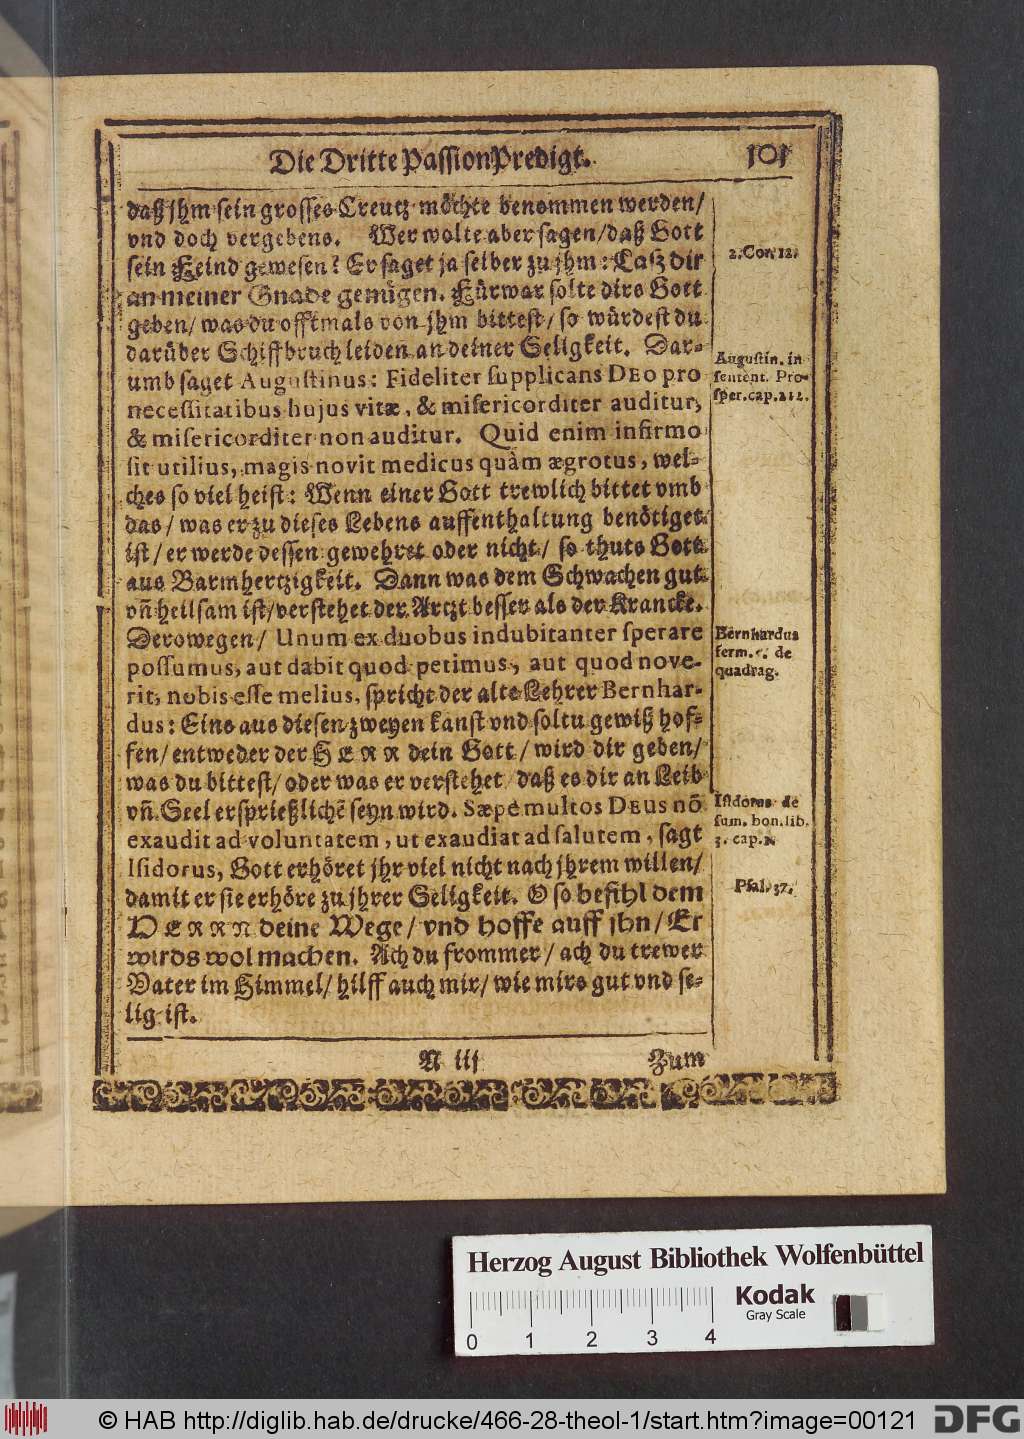 Die Dritte PassionPredigt. 101
daß jhm sein grosses Creutz möchte benommen werden/
vnd doch vergebens. Wer wolte aber sagen/daß Gott
sein Feind gewesen? Er saget ja selber zu jhm: Laß dir
an meiner Gnade genügen. Fürwar solte dirs Gott
geben/ was du offtmals von jhm bittest/ so würdest du
darüber Schiffbruch leiden an deiner Seligkeit. Dar-
umb saget Augustinus: Fideliter supplicans DEO pro
necessitatibus hujus vitæ, & misericorditer auditur,
& misericorditer non auditur. Quid enim infirmo
sit utilius, magis novit medicus quàm ægrotus, wel-
ches so viel heist: Wenn einer Gott trewlich bittet vmb
das/ was er zu dieses Lebens auffenthaltung benötiget
ist/ er werde dessen gewehret oder nicht/ so thuts Gott
aus Barmhertzigkeit. Dann was dem Schwachen gut
vñ heilsam ist/verstehet der Artzt besser als der Krancke.
Derowegen/ Unum ex duobus indubitanter sperare
possumus, aut dabit quod petimus, aut quod nove-
rit, nobis esse melius, spricht der alte Lehrer Bernhar-
dus: Eins aus diesen zweyen kanst vnd soltu gewiß hof-
fen/ entweder der HERR dein Gott/ wird dir geben/
was du bittest/ oder was er verstehet daß es dir an Leib
vñ Seel ersprießlichẽ seyn wird. Sæpè multos DEUS nõ
exaudit ad voluntatem, ut exaudiat ad salutem, sagt
Isidorus, Gott erhöret jhr viel nicht nach jhrem willen/
damit er sie erhöre zu jhrer Seligkeit. O so befihl dem
HERRN deine Wege/ vnd hoffe auff ihn/ Er
wirds wol machen. Ach du frommer/ ach du trewer
Vater im Himmel/ hilff auch mir/ wie mirs gut vnd se-
lig ist.
N iij Zum
2. Cor. 12.
Augustin. in
sentent. Pro-
sper. cap. 212.
Bernhardus
serm. de
quadrag.
Isidorus de
sum. bon. lib.
3. cap.
Psal. 37.
Herzog August Bibliothek Wolfenbüttel
Kodak
Gray Scale
0 1 2 3 4
© HAB http://diglib.hab.de/drucke/466-28-theol-1/start.htm?image=00121
DFG